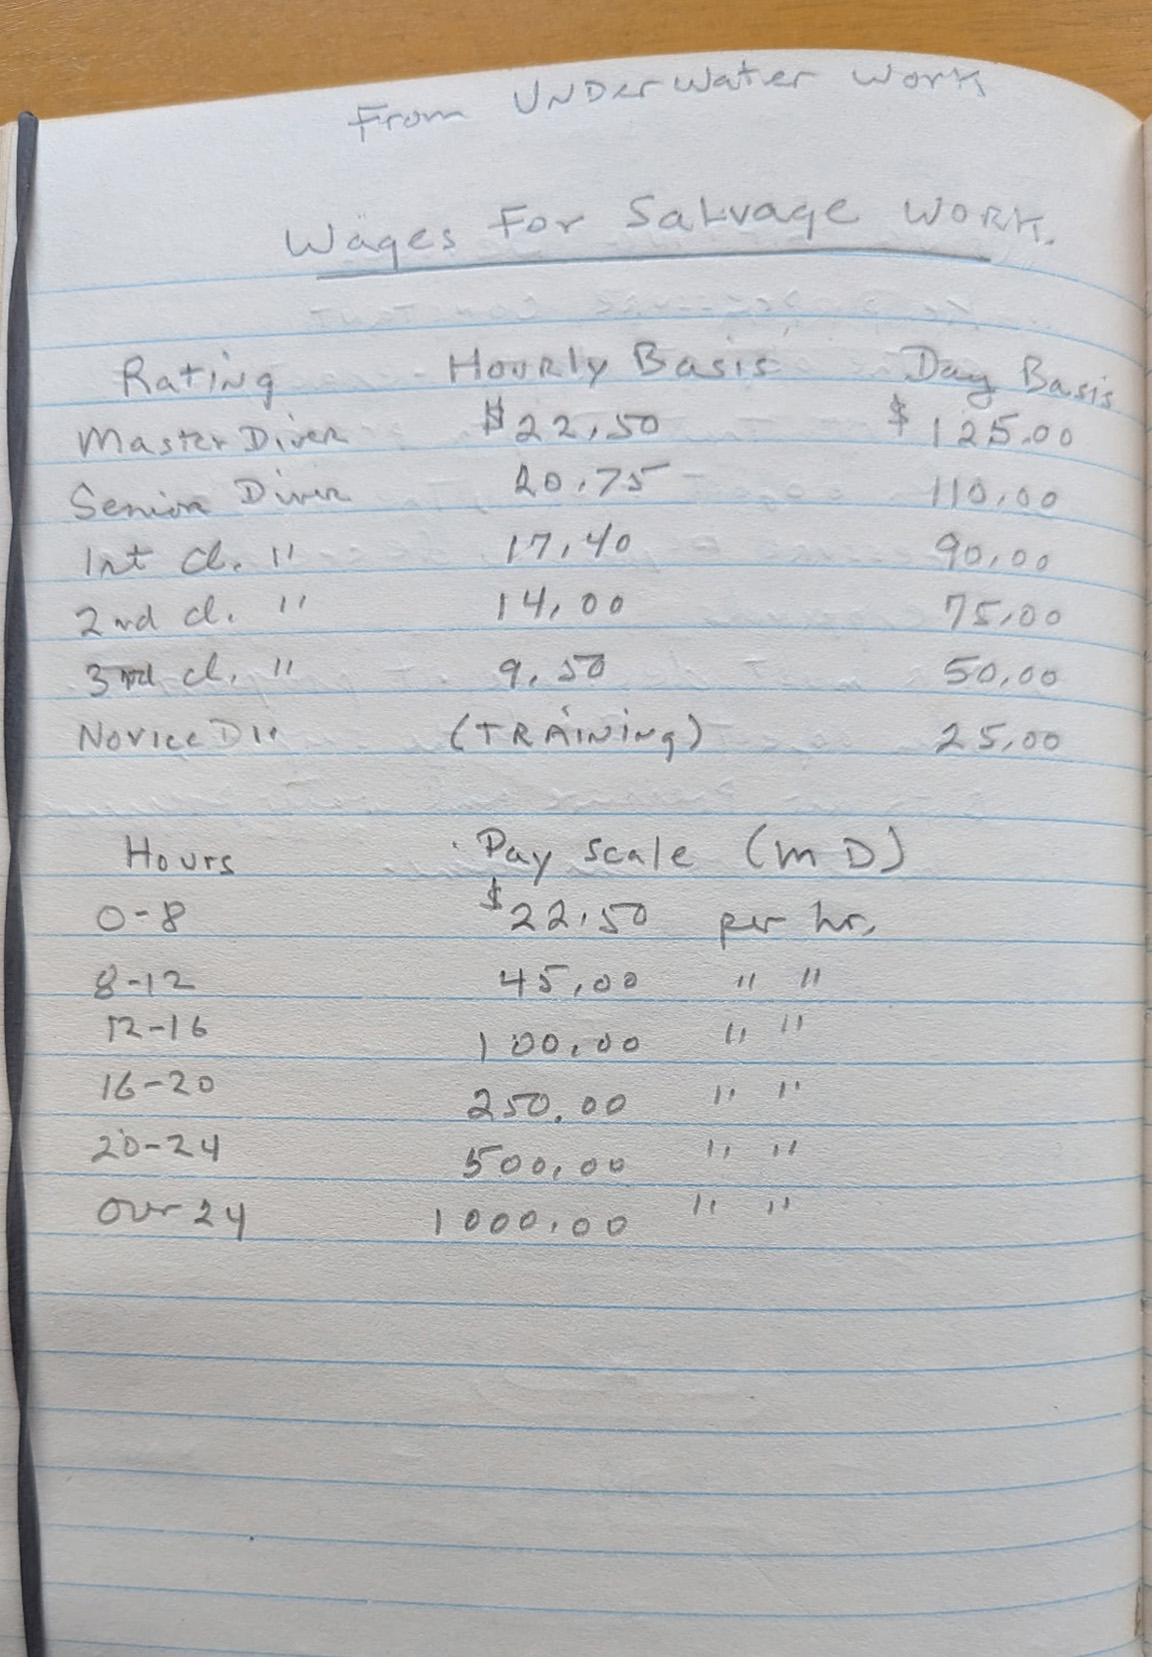 From UNDerwater Work
Wages For Salvage Work.
Rating Hourly Basis Day Basis
Master Diver $22.50 $125.00
Senior Diver 20.75 110.00
1st cl. " 17.40 90.00
2nd cl. " 14.00 75.00
3rd cl. " 9.50 50.00
Novice D " (TRAining) 25.00
Hours Pay scale (MD)
0-8 $22.50 per hr.
8-12 45.00 " "
12-16 100.00 " "
16-20 250.00 " "
20-24 500.00 " "
over 24 1000.00 " "